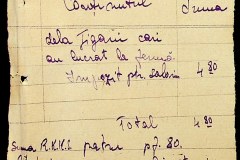 Conținutul Suma
dela Țiganii cari
au lucrat la fermă
Impozit ptr. salarii 4 80
Total 4 80
Suma R.K.K.I. patru 80.